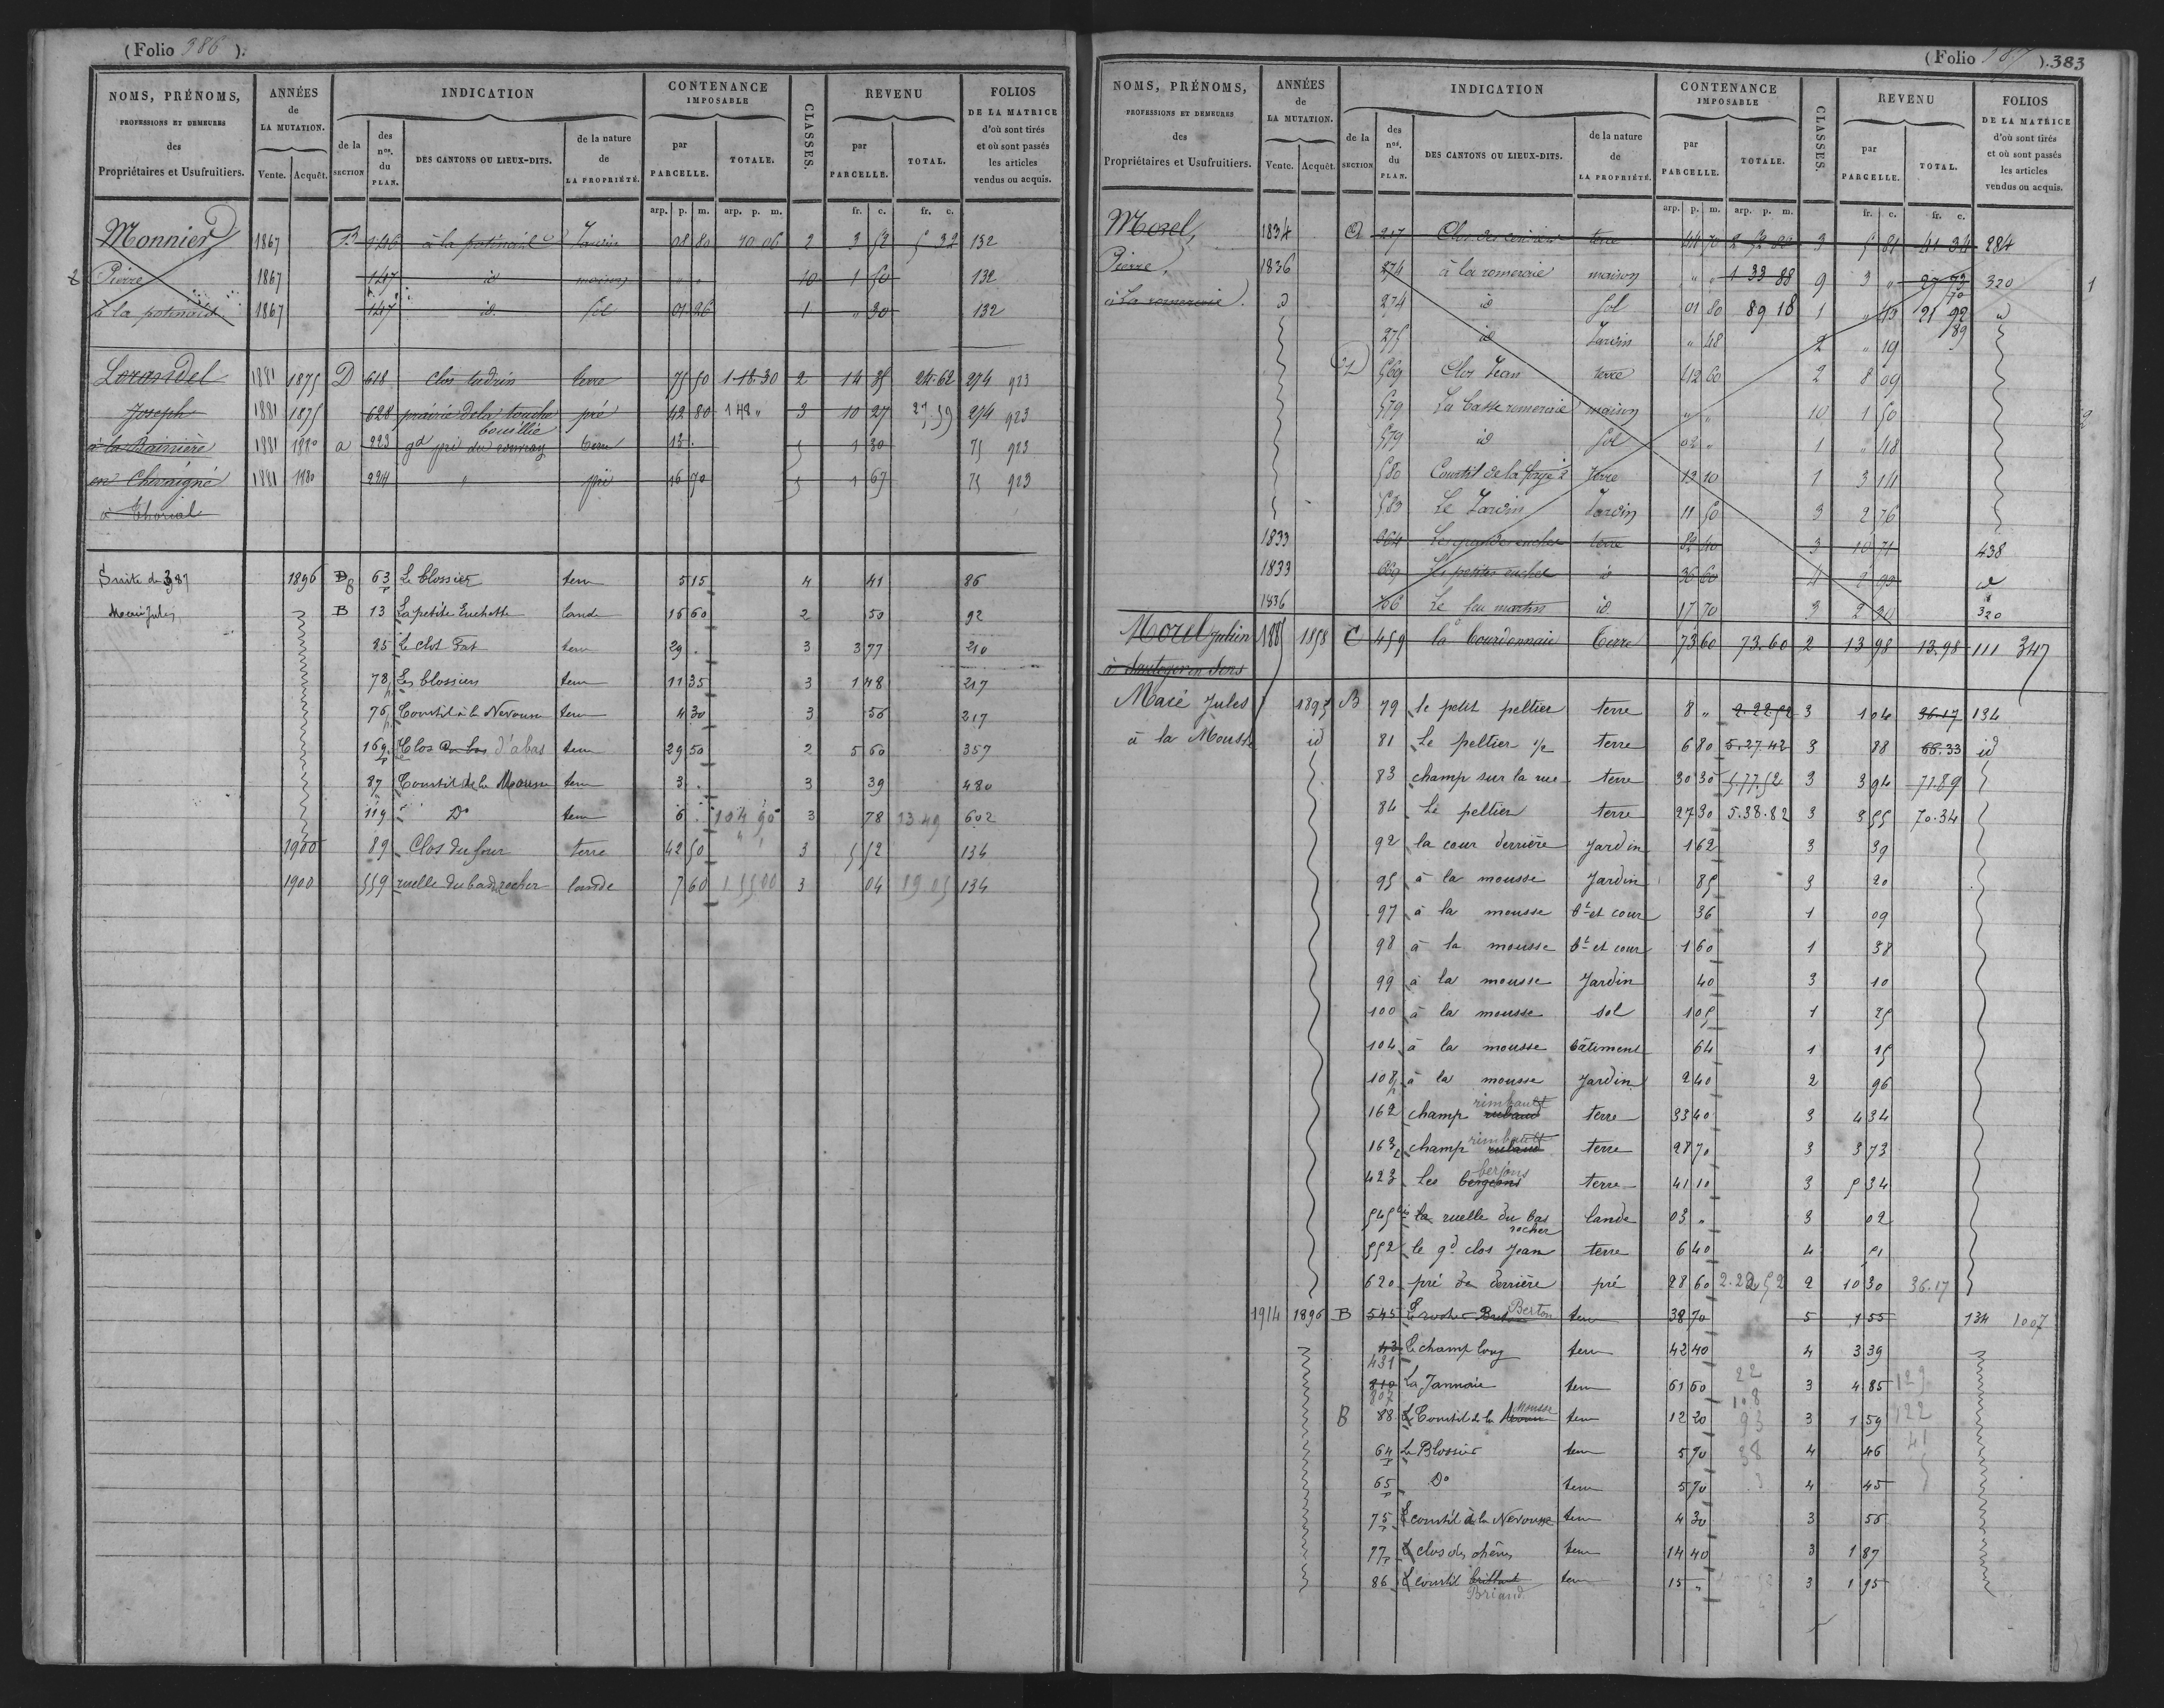 (Folio 386).
NOMS, PRÉNOMS, PROFESSIONS ET DEMEURES des Propriétaires et Usufruitiers. ANNÉES de LA MUTATION. Vente. Acquêt. INDICATION de la SECTION des nos. du PLAN. DES CANTONS OU LIEUX-DITS. de la nature de LA PROPRIÉTÉ. CONTENANCE IMPOSABLE par PARCELLE. TOTALE. CLASSES. REVENU par PARCELLE. TOTAL. FOLIOS DE LA MATRICE d'où sont tirés et où sont passés les articles vendus ou acquis.
arp. p. m. arp. p. m. fr. c. fr. c.
Monnier 1867 B 146 à la potinais Jardin 08 80 10 06 2 3 52 5 32 132
2 Pierre 1867 147 id maison " " 10 1 50 132
à la potinais 1867 147 id. sol 01 26 1 " 30 132
Lorandel 1881 1875 D 618 clos tudrin terre 75 50 1.18.30 2 14 35 24.62 274 923
Joseph 1881 1875 628 prairie de la touche bouillie pré 42 80 148 " 3 10 27 27,59 274 923
à la Bainière 1881 1880 a 223 gd pré du rouvray terre 13 . 5 1 30 75 923
en Chevaigné 1881 1880 224 " pré 16 70 5 1 67 75 923
à Thorial
Suite du 387 1896 B 63 p Le Clossier terre 5 15 4 41 86
Macé Jules B 13 La petite Enchette lande 16 60 2 50 92
25 Le clos Fat terre 29 . 3 3 77 210
78 p Les Clossiers terre 11 35 3 1 48 217
76 p Courtil à la Nevousse terre 4 30 3 56 217
169 p Le Clos du bas d'abas terre 29 50 2 5 60 357
87 Courtil de la Mousse terre 3 . 3 39 480
119 Do terre 6 . 104 90 3 78 13 49 602
1900 89 Clos du four terre 42 50 3 5 52 134
1900 559 ruelle du bas du rocher lande 7 60 1 55 00 3 04 19 05 134
(Folio 387). 383
NOMS, PRÉNOMS, PROFESSIONS ET DEMEURES des Propriétaires et Usufruitiers. ANNÉES de LA MUTATION. Vente. Acquêt. INDICATION de la SECTION des nos. du PLAN. DES CANTONS OU LIEUX-DITS. de la nature de LA PROPRIÉTÉ. CONTENANCE IMPOSABLE par PARCELLE. TOTALE. CLASSES. REVENU par PARCELLE. TOTAL. FOLIOS DE LA MATRICE d'où sont tirés et où sont passés les articles vendus ou acquis.
arp. p. m. arp. p. m. fr. c. fr. c.
Morel, 1834 a 217 Clos des terre 44 70 2 52 88 3 5 81 41 34 284
Pierre, 1836 274 à la romeraie maison " " 1 33 88 9 3 " 27 73 320 1
à la romeraie. d 274 id sol 01 80 89 18 1 " 43 21 92 d
275 id Jardin " 48 2 " 19 89
D 569 Clos Jean terre 42 60 2 8 09
579 La basse romeraie maison " " 10 1 50 2
579 id sol 02 " 1 " 48
580 Courtil de la forge terre 13 10 1 3 14
583 Le Jardin Jardin 11 50 3 2 76
1833 664 Les grandes enches terre 82 40 3 10 71 438
1833 669 Les petites enches d 36 60 4 2 93 d
1836 706 Le feu martin id 17 70 3 2 30 320
Morel julien 1881 1858 C 459 la bourdonnaie terre 73 60 73.60 2 13 98 13.98 111 347
à Sautoger en Sens
Macé Jules 1895 B 79 le petit peltier terre 8 " 2.22.52 3 1 04 36.17 134
à la Mousse id 81 Le peltier 1/2 terre 6 80 5.27.42 3 88 66.33 id
83 champ sur la rue terre 30 30 5.77.52 3 3 94 71.89
84 Le peltier terre 27 30 5.38.82 3 3 55 70.34
92 la cour derrière Jardin 1 62 3 39
95 à la mousse Jardin 85 3 20
97 à la mousse bt et cour 36 1 09
98 à la mousse bt et cour 1 60 1 38
99 à la mousse Jardin 40 3 10
100 à la mousse sol 1 05 1 25
104 à la mousse bâtiment 64 1 15
108 p à la mousse Jardin 2 40 2 96
162 champ rubaud rimbault terre 33 40 3 4 34
163 champ rubaud rimbault terre 28 70 3 3 73
423 Les bergeons berjons terre 41 10 3 5 34
545 bis la ruelle du bas rocher lande 03 " 3 02
552 le gd clos Jean terre 6 40 4 51
620 pré de derrière pré 28 60 2.22 52 2 10 30 36.17
1914 1896 B 545 Le rocher Breton Berton terre 38 70 5 1 55 134 1007
43 431 Le champ long terre 42 40 4 3 39
810 807 La Jannaie terre 61 60 22 3 4 85 129
B 88 Le Courtil de la Mousse terre 12 20 108 93 3 1 59 122
64 p Le Blossier terre 5 70 38 4 46 41
65 p Do terre 5 70 3 4 45 5
75 p Le courtil à la Nevousse terre 4 30 3 56
77 p Le clos des chênes terre 14 40 3 1 87
86 Le courtil brillant Briand terre 15 " 3 1 95